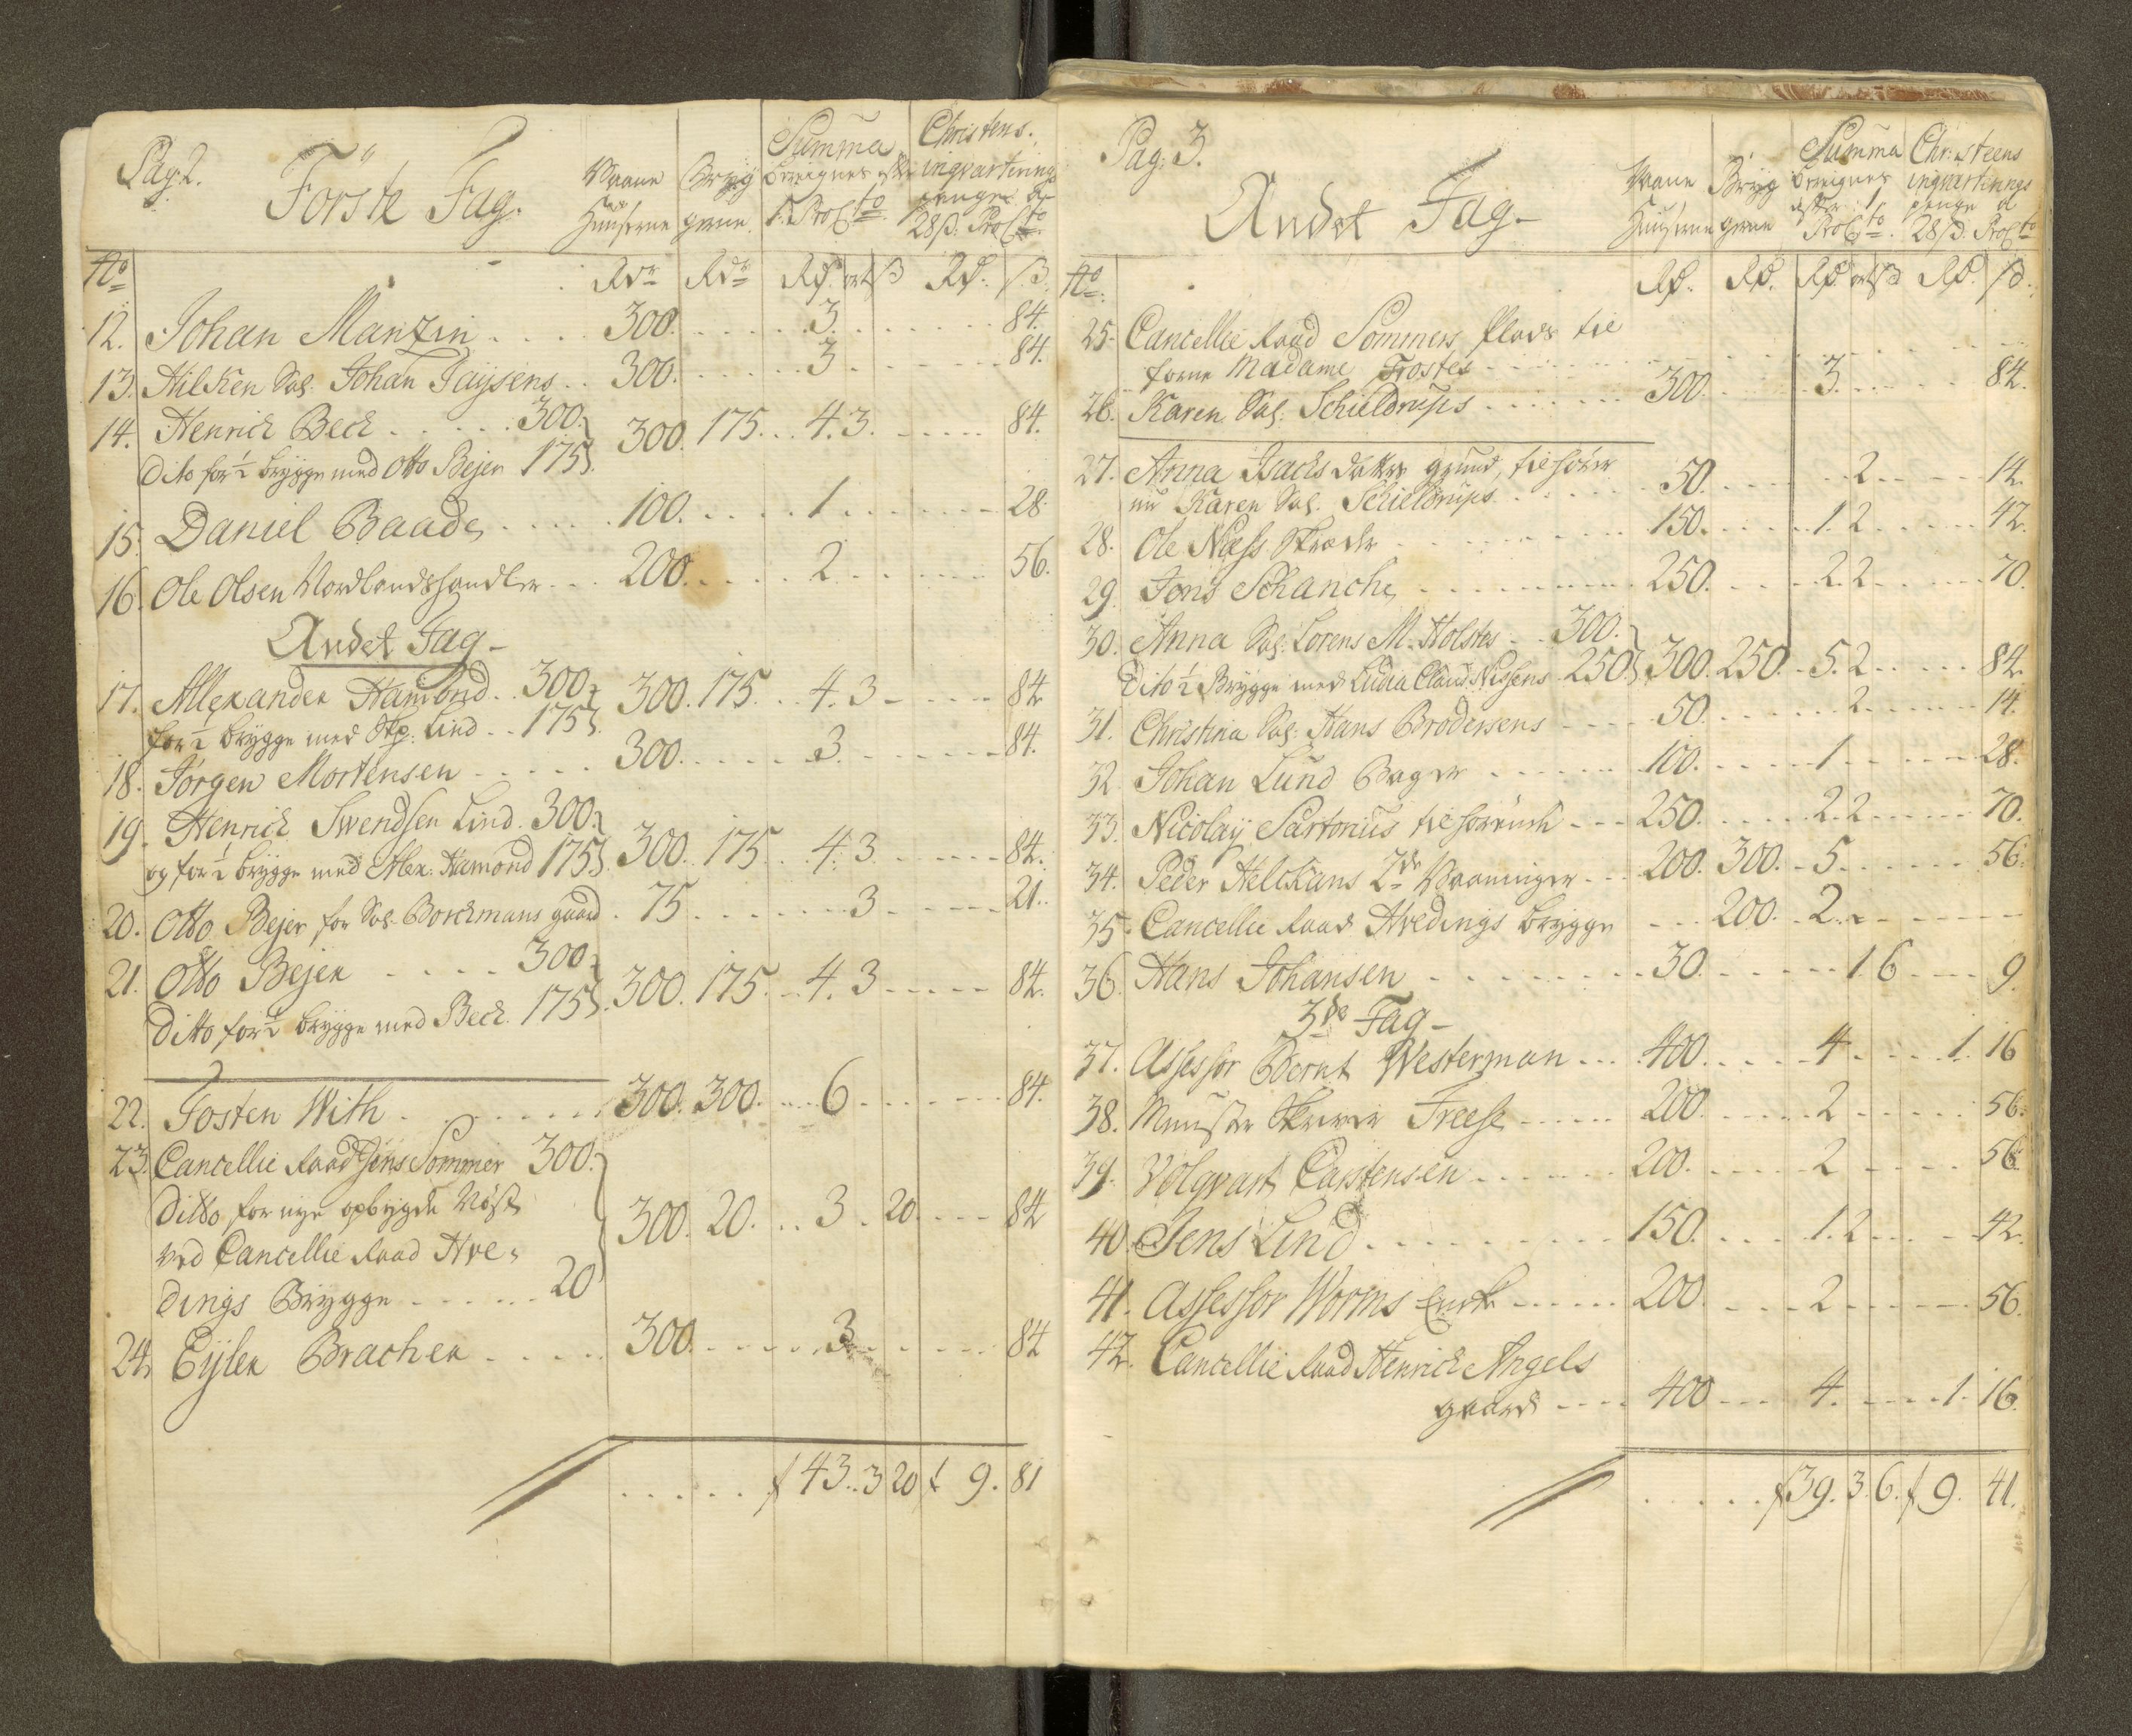 Pag: 2.
Förste Fag.
Vaane Husene
Brygerne
Summa
Christens.
ingvarterings
penge
28 ß. Pro Cto
No
Rdr Rdr Rd. ort ß Rd. ß.
12. Johan Mantzin . . . . 300. . . . . . 3. . . . . . . . 84.
13. Hilken Sal. Johan Faÿsens . . 300. . . . . . 3 . . . . . . . 84.
14. Henrich Beck . . . . . 300. 300. 175. . . 4. 3. . . . . . . 84.
Dito for ½ brygge med Otto Bejer 175
15. Daniel Baade . . . . . 100. . . . . 1 . . . . . . . 28.
16. Ole Olsen Nordlandshandler . . . 200. . . . . . 2 . . . . . . . 56.
Andet Fag -
17. Allexander Hamond . . 300. 300. 175. . . 4. 3 - . . . . 84
for ½ brygge med Skp: Lind . . 175
18. Jørgen Mortensen . . . . . 300. . . . . . 3. . . . . . . 84.
19. Henrich Swendsen Lind. 300. 300. 175. . . 4. 3 . . . . . . 84.
og for ½ brygge med Alex: Hamond 175
20. Otto Bejer for Sal. Borchmans gaard . 75 . . . . . . . 3 . . . . . 21.
21. Otto Bejer . . . . . 300. 300. 175. . . 4. 3 . . . . . 84.
Ditto for ½ brygge med Beck. 175
22. Tosten With . . . . . . . 300. 300. . . . 6 . . . . . . . 84.
23. Cancellie Raad Jens Sommer 300.
Ditto for nye opbygde Nøst
ved Cancellie Raad Hve-
dings Brygge . . . . . . 20 300. 20. . . 3 . 20 . . . . 84
24. Eÿler Bracher . . . . . 300. . . . . . 3 . . . . . . . 84
. . . . . . f 43. . 3 20 f 9. 81
Pag: 3.
Andet Fag -
Vaane Husene
Bryggerne
Summa
beregnes efter 1 Pro Cto.
Christeens
ingvarterings penge a 28 ß. Pro Cto
No.
Rd. Rd. Rd. ort ß Rd. ß.
25. Cancellie Raad Sommers Plads til
forne Madame Frostes . . . . .
26. Karen Sal. Schieldrups . . . . . . 300. . . . . . 3. . . . . . 84.
27. Anna Isachs datters grund, tilhører
nu Karen Sal. Schieldrups . . . . . . 50. . . . . . . 2 . . . . . 14.
28. Ole Næss Skræder . . . . . . . . 150. . . . . 1. 2 . . . . . 42.
29. Jens Schanche . . . . . . . . . 250. . . . . 2. 2 . . . . . 70.
30. Anna Sal. Lorens M. Holstes . . 300.
Dito ½ Brygge med Ludia Claud Nissens 250. 300. 250. . 5. 2 . . . . . 84
31. Christina Sal: Hans Brodersens . . . . 50. . . . . . . 2 . . . . . . 14.
32. Johan Lund Bager . . . . . . . 100. . . . . . 1 . . . . . . 28.
33. Nicolaÿ Sartorius . . . 250. . . . . 2. 2 . . . . . 70.
34. Peder Helckans 2de Vaaninger . . . 200. 300. . 5 . . . . . . 56.
35. Cancellie Raad Hvedings brygge . . . 200. . 2. . . . . . . .
36. Hans Johansen . . . . . . . . . 30. . . . . . . 1. 6 . . . . 9.
3de Fag -
37. Assessor Bernt Westerman . . . 400. . . . . 4 . . . . . 1. 16
38. Munster Skriver Freese . . . . . . 200. . . . . . 2 . . . . . . 56.
39. Volqvart Carstensen . . . . . . 200. . . . . . 2 . . . . . 56
40. Jens Lind . . . . . . . . . . 150. . . . . 1. 2 . . . . . 42.
41. Assessor Worms Encke . . . . . . 200. . . . . 2 . . . . . . 56.
42. Cancellie Raad Henrich Angels
gaard . . . . 400 . . . . 4. . . . . . 1. 16.
. . . . . f 39. 3. 6. f 9. 41.